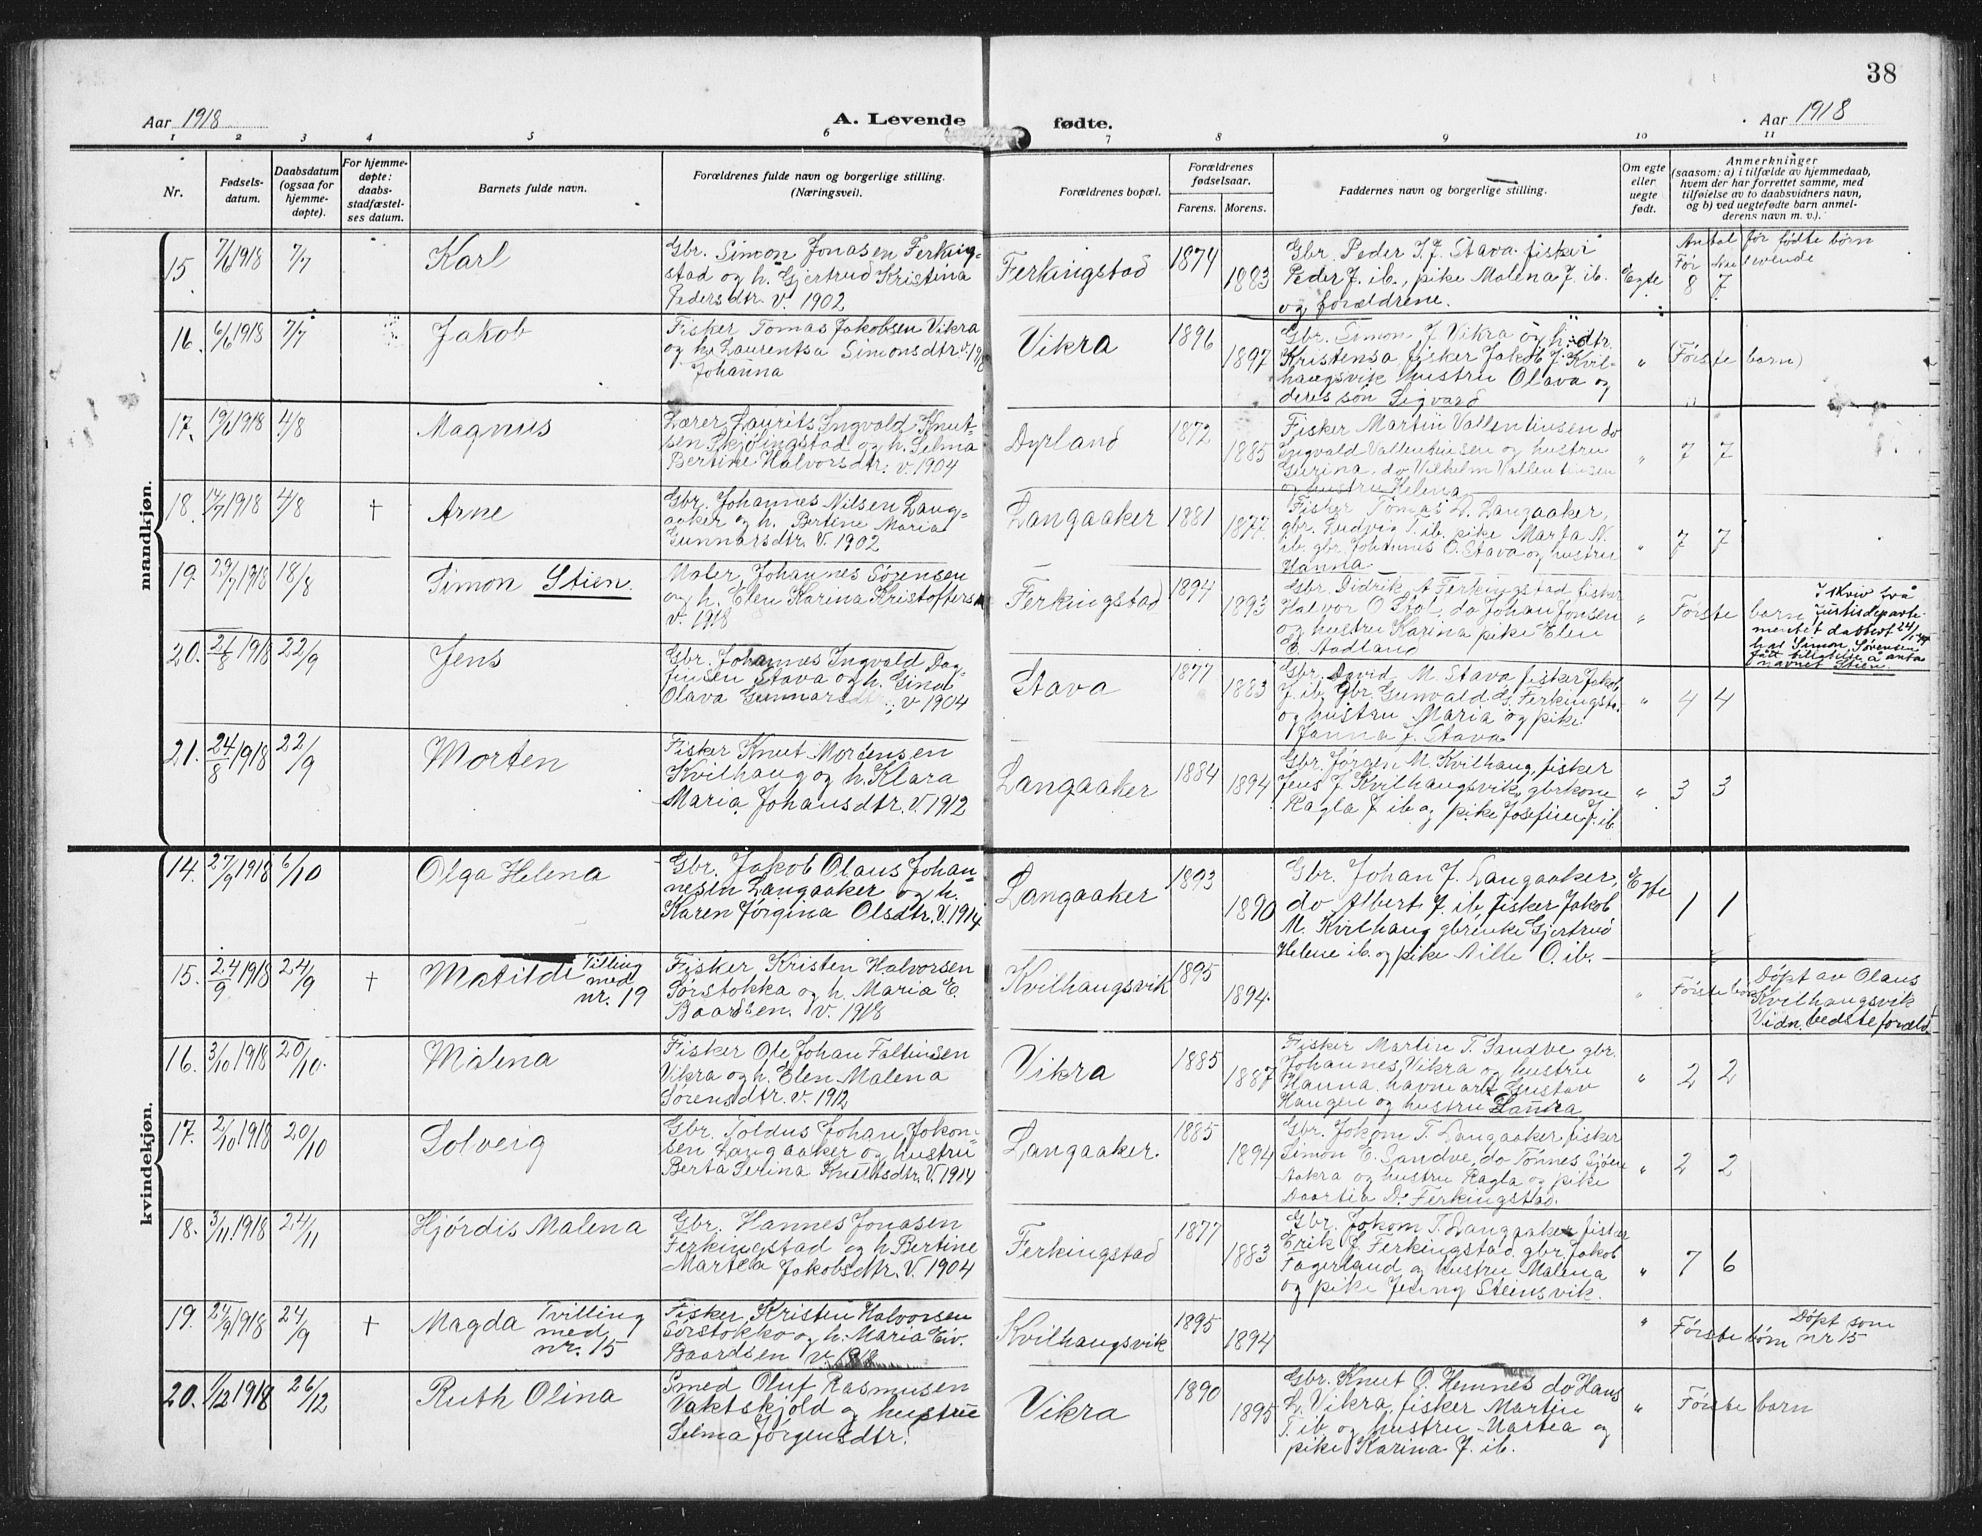 38
Aar 1918
A. Levende
fødte.
Aar 1918
1 2 3 4 5 6 7 8 9 10 11
Nr.
Fødsels-
datum.
Daabsdatum
(ogsaa for
hjemme-
døpte).
For hjemme-
døpte:
daabs-
stadfæstel-
ses datum.
Barnets fulde navn.
Forældrenes fulde navn og borgerlige stilling.
(Næringsvei).
Forældrenes bopæl.
Forældrenes
fødselsaar.
Farens. Morens.
Faddernes navn og borgerlige stilling.
Om egte
eller
uegte
født.
Anmerkninger
(saasom: a) i tilfælde av hjemmedaab,
hvem der har forrettet samme, med
tilføielse av to daabsvidners navn,
og b) ved uegtefødte barn anmel-
derens navn m. v.).
mandkjøn.
15 7/6 1918 7/7 Karl
Gbr. Simon Jonasen Ferking-
stad og h. Gjertrud Kristina
Pedersdtr. v. 1902
Ferkingstad 1874 1883
Gbr. Peder S. J. Stava fisker
Peder J. ib., pike Malena J. ib.
og forældrene.
Egte
Antal før fødte børn
Før Nu levende
8 7
16. 6/6 1918 7/7 Jakob
Fisker Tomas Jakobsen Vikra
og h. Laurentsa Simonsdtr v. 1918
Johanna
Vikra 1896 1897
Gbr. Simon J Vikra og h. dtr.
Kristensa fisker Jakob J. Kvil-
haugsvik hustru Olava og
deres søn Sigvard
" (Første barn)
17. 19/6 1918 4/8 Magnus
Lærer Laurits Ingvald Knut-
sen Skjölingstad og h. Selma
Bertine Halvorsdtr. v. 1904
Dyrland 1872 1885
Fisker Martin Vallentinsen do
Ingvald Vallentinsen og hustru
Gurina. do Vilhelm Vallentinsen
og hustru Helena
" 7 7
18. 17/7 1918 4/8 + Arne
Gbr. Johannes Nilsen Lang-
aaker og h. Bertine Maria
Gunnarsdtr. V. 1902
Langaaker 1881 1877.
Fisker Tomas L. Langaaker,
gbr. Ludvig T. ib. pike Marta N.
ib. gbr. Johannes O. Stava og hustru
Hanna
" 7 7
19. 29/7 1918 18/8 Simon Stien.
Maler, Johannes Sørensen
og h. Elen Karina Kristoffers
v. 1918
Ferkingstad 1894 1893
Gbr. Didrik A Ferkingstad fisker
Halvor O Stol, do Johan Jonsen
og hustru Karina pike Elen
E. Aadland
" Første barn
I skriv frå
Justisdeparte-
mentet datert 24/1
har Simon Sørensen
fått tillatelse å anta
navnet Stien.
20. 26/8 1918 22/9 Jens
Gbr. Johannes Ingvald Dag-
finsen Stava og h. Gina
Olava Gunnarsdtr. v 1904
Stava 1877 1883
Gbr. David M. Stava fisker Jakob
J. ib. Gbr. Gunvald G. Ferkingsta.
og hustru Maria og pike
Janna J. Stava
" 4 4
21. 24/8 1918 22/9 Morten
Fisker Knut Mortensen
Kvilhaug og h. Klara
Maria Johansdtr. V. 1912
Langaaker 1884 1894
Gbr. Jørgen M. Kvilhaug, fisker
Jens J Kvilhaugsvik, gbrkone
Ragla J ib og pike Josefine J. ib
" 3 3
kvindekjøn.
14. 27/9 1918 6/10 Olga Helena
Gbr. Jakob Olaus Johan-
nesen Langaaker og h.
Karen Jørgina Olsdtr. V. 1914
Langaaker 1893 1890
Gbr. Johan J. Langaaker,
do Albert J. ib, fisker Jakob
M. Kvilhaug gbrenke Gjertrud
Helene ib. og pike Nille O. ib.
Egte 1 1
15. 24/9 1918 24/9 + Matilde Tilling
med
nr. 19
Fisker Kristen Halvorsen
Sørstokka og h. Maria E.
Baardsen. v. 1918
Kvilhaugsvik 1895 1894.
" Første børn
Døpt av Olaus
Kvilhaugsvik
Vidn. bedsteforæld
16. 3/10 1918 20/10. Malena
Fisker Ole Johan Faltinsen
Vikra og h. Elen Malena
Sørensdtr. v. 1912
Vikra 1885 1887
Fisker Martin T. Sandve gbr.
Johannes Vikra og hustru
Hanna. havnearb Gustav
Haugen og hustru Laura
" 2 2
17. 2/10 1918 20/10 Solveig
Gbr. Toldus Johan Jokon-
sen Langaaker og hustru
Berta Serina Knutsdtr. V. 1914
Langaaker. 1885 1894
Gbr. Jokom T. Langaaker, fisker
Simon E. Sandve, do Tönnes Sjøen
Aakra og hustru Ragla og pike
Daartia D. Ferkingstad.
" 2 2
18. 3/11. 1918 24/11 Hjørdis Malena
Gbr. Hannes Jonasen
Ferkingstad og h. Bertine
Martea Jakobsdtr. V. 1904
Ferkingstad 1877 1883
Gbr. Jokom T. Langaaker fisker
Erik J. Ferkingstad. gbr. Jakob
Fagerland og hustru Malena
og pike Jenny Steinsvik.
" 7 6
19. 24/9 1918 24/9 + Magda Tvilling
med
nr. 15
Fisker, Kristen Halvorsen
Sørstokke og h. Maria Ev.
Baardsen v. 1918
Kvilhaugsvik 1895 1894
" Første børn
Døpt som
nr 15
20. 1/12 1918 26/12 Ruth Olina
Smed Oluf Rasmusen
Vaktskjold og hustru
Selma Jørgensdtr.
Vikra 1890 1895
Gbr. Knut O. Hemnes do Hans
L. Vikra, fisker Martin
T. ib og hustru Martea og
pike Karina J. ib.
" Første barn